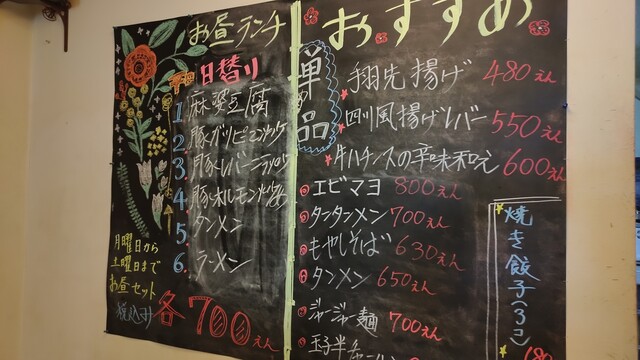 お昼ランチ
日替り
1 麻婆豆腐
2 豚ガツピーマン炒め
3. 豚レバーニラ炒め
4. 豚ホルモン炒め
5. タンメン
6. ラーメン
月曜日から
土曜日まで
お昼セット
税込み 各700えん
おすすめ
単品
手羽先揚げ 480えん
四川風揚げレバー 550えん
牛ハチノスの辛味和え 600えん
エビマヨ 800えん
タンタンメン 700えん
もやしそば 630えん
タンメン 650えん
ジャージャー麺 700えん
玉子半チャーハン
焼き餃子(3コ)
180